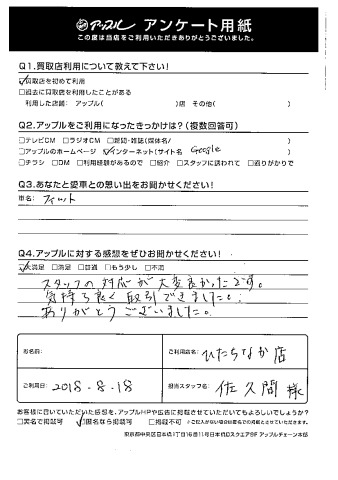 アップル アンケート用紙
この度は当店をご利用いただきありがとうございました。
Q1.買取店利用について教えて下さい!
☑買取店を初めて利用
□過去に買取店を利用したことがある
利用した店舗: アップル( )店 その他( )
Q2.アップルをご利用になったきっかけは?(複数回答可)
□テレビCM □ラジオCM □雑誌・雑誌(媒体名/ )
□アップルのホームページ ☑インターネット(サイト名 Google )
□チラシ □DM □利用経験があるので □紹介 □スタッフに誘われて □通りがかりで
Q3.あなたと愛車との思い出をお聞かせください!
車名: フィット
Q4.アップルに対する感想をぜひお聞かせください!
☑大満足 □満足 □普通 □もう少し □不満
スタッフの対応が大変良かったです。
気持ち良く取引できました。
ありがとうございました。
お名前:
ご利用店名: ひたちなか店
ご利用日: 2018-8-18
担当スタッフ名: 佐久間 様
お客様に書いていただいた感想を、アップルHPや広告に掲載させていただいてもよろしいでしょうか?
□実名で掲載可 ☑匿名なら掲載可 □掲載不可 (※ご記入がない場合は匿名での掲載とさせていただきます)
東京都中央区日本橋1丁目16番11号日本橋Dスクエア5F アップルチェーン本部